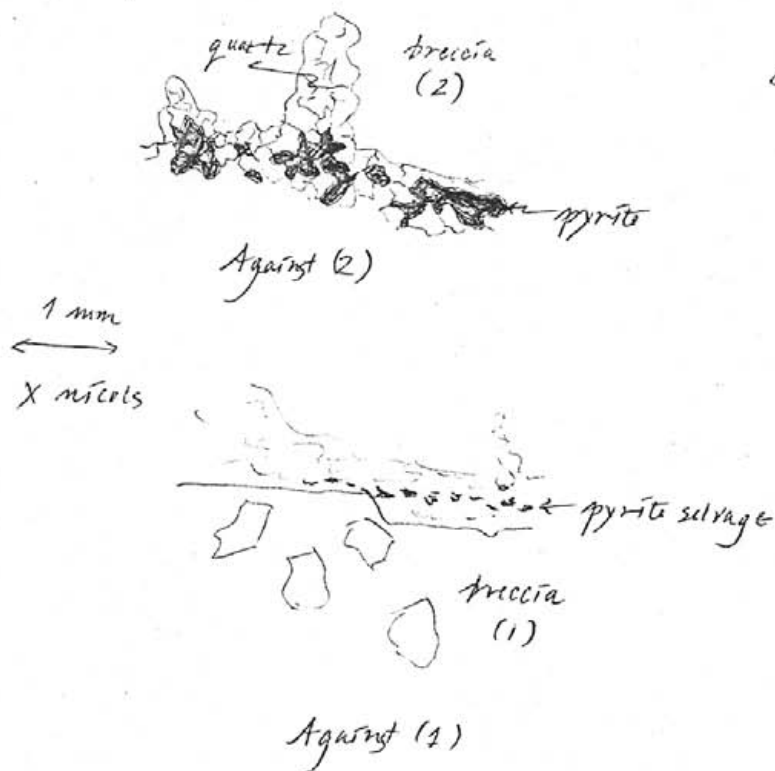 quartz
breccia
(2)
pyrite
Against (2)
1 mm
X nicols
pyrite selvage
breccia
(1)
Against (1)